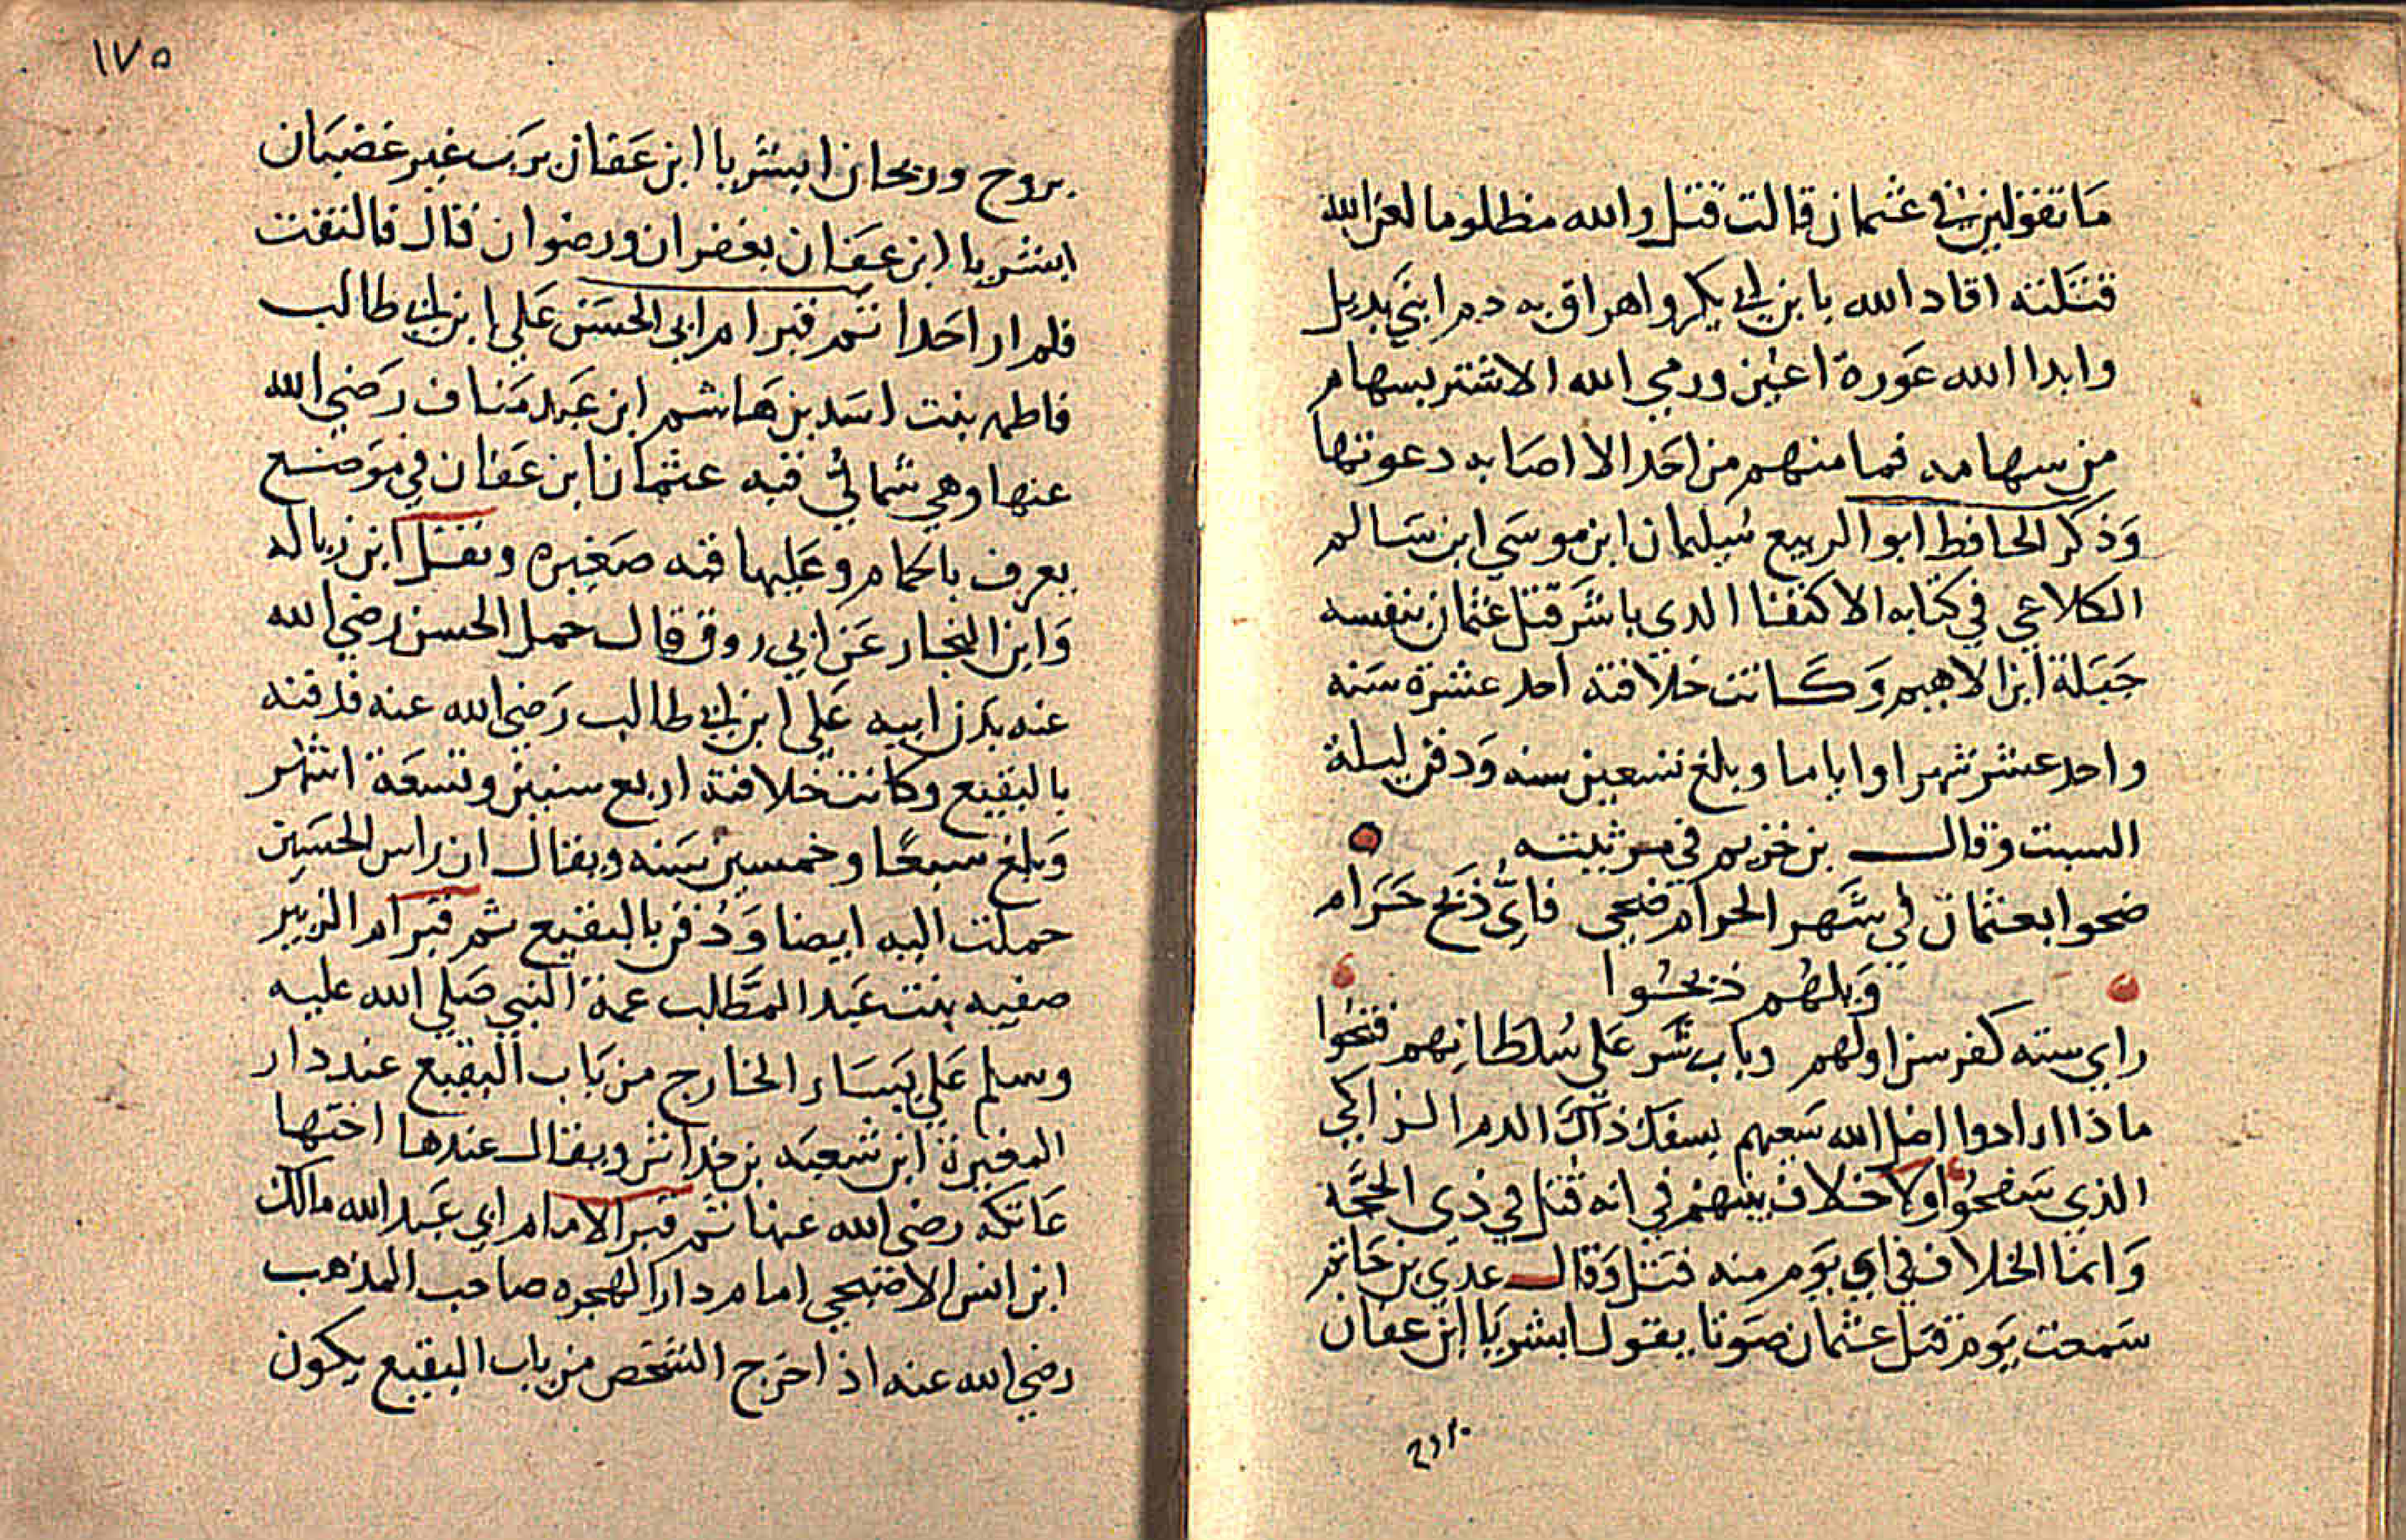 ما تقولين في عثمان قالت قتل والله مظلوما لعن الله
قتلته اقاد الله بابن ابي بكر واهراق به دم ابني بديل
وابدا الله عورة اعين ورمي الله الاشتر بسهام
من سهامه فما منهم من احد الا اصابه دعوتها
وذكر الحافظ ابو الربيع سليمان ابن موسي ابن سالم
الكلاعي في كتابه الاكتفا الذي باشر قتل عثمان بنفسه
جبلة ابن الاهيم وكانت خلافته احد عشرة سنه
واحد عشر شهرا واياما وبلغ تسعين سنه ودفن ليلة
السبت وقال بن خزيم في مرثيته
ضحوا بعثمان في شهر الحرام ضحي فاي ذبح حرام
ويلهم ذبحوا
راي سنه كفر سن اولهم وباب شر علي سلطانهم فتحوا
ماذا ارادوا اضل الله سعيهم بسفك ذاك الدم الزاكي
الذي سفحوا ولا خلاف بينهم في انه قتل في ذي الحجة
وانما الخلاف في اي يوم منه قتل وقال عدي بن حاتم
سمعت يوم قتل عثمان صوتا يقول ابشر يا ابن عفان
بروح
١٧٥
بروح وريحان ابشر يا ابن عفان برب غير غضبان
ابشر يا ابن عفان بغفران ورضوان قال فالتفت
فلم ار احدا ثم قبر ام ابي الحسن علي ابن ابي طالب
فاطمه بنت اسد بن هاشم ابن عبد مناف رضي الله
عنها وهي شمالي قبه عثمان ابن عفان في موضع
يعرف بالحمام وعليها قبه صغيره ونقل ابن زباله
وابن النجار عن ابي روق قال حمل الحسن رضي الله
عنه بدن ابيه علي ابن ابي طالب رضي الله عنه فدفنه
بالبقيع وكانت خلافته اربع سنين وتسعة اشهر
وبلغ سبعا وخمسين سنه ويقال ان راس الحسين
حملت اليه ايضا ودفن بالبقيع ثم قبر ام الزبير
صفيه بنت عبد المطلب عمة النبي صلي الله عليه
وسلم علي يسار الخارج من باب البقيع عند دار
المغيرة ابن شعبه بن خداش ويقال عندها اختها
عاتكه رضي الله عنها ثم قبر الامام ابي عبد الله مالك
ابن انس الاصبحي امام دار الهجره صاحب المذهب
رضي الله عنه اذ اخرج الشخص من باب البقيع يكون